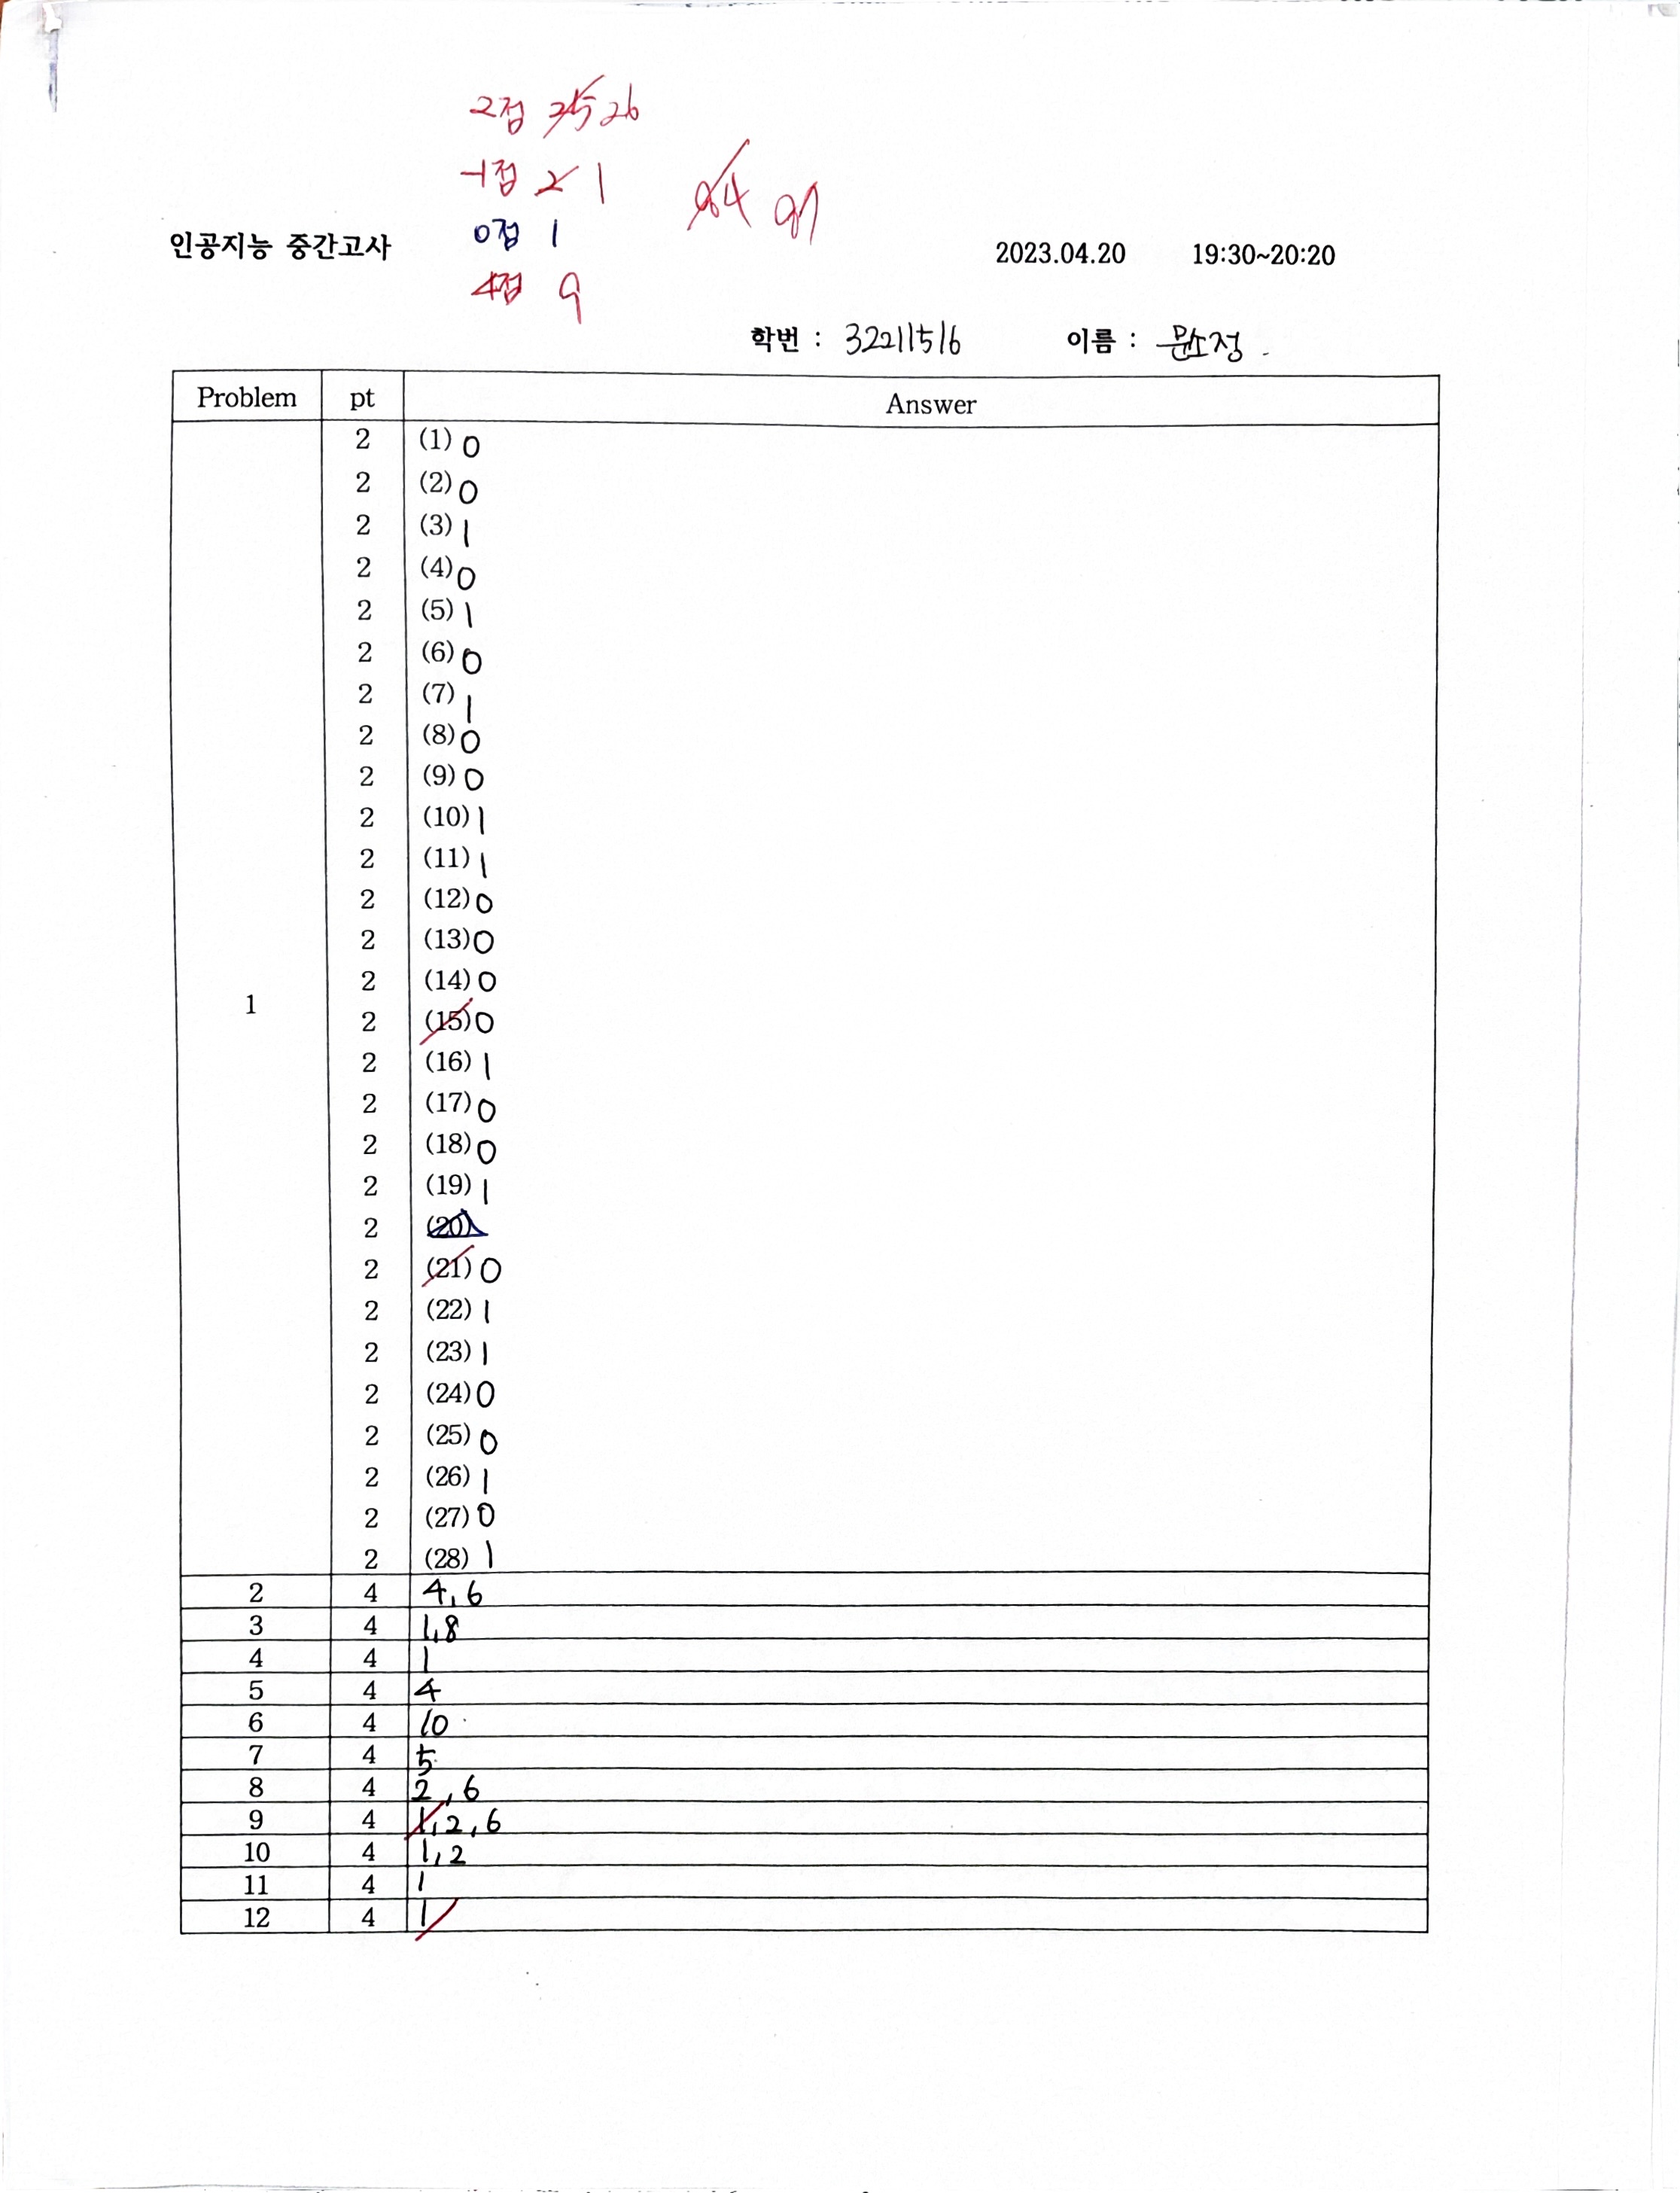 2점 25 26
-1점 2 1
84 87
0점 1
인공지능 중간고사
2023.04.20 19:30~20:20
4점 9
학번 : 32211516 이름 : 문소정
Problem pt Answer
2 (1) 0
2 (2) 0
2 (3) 1
2 (4) 0
2 (5) 1
2 (6) 0
2 (7) 1
2 (8) 0
2 (9) 0
2 (10) 1
2 (11) 1
2 (12) 0
2 (13) 0
2 (14) 0
1
2 (15) 0
2 (16) 1
2 (17) 0
2 (18) 0
2 (19) 1
2 (20)
2 (21) 0
2 (22) 1
2 (23) 1
2 (24) 0
2 (25) 0
2 (26) 1
2 (27) 0
2 (28) 1
2 4 4, 6
3 4 1,8
4 4 1
5 4 4
6 4 10
7 4 5
8 4 2, 6
9 4 1, 2, 6
10 4 1, 2
11 4 1
12 4 1